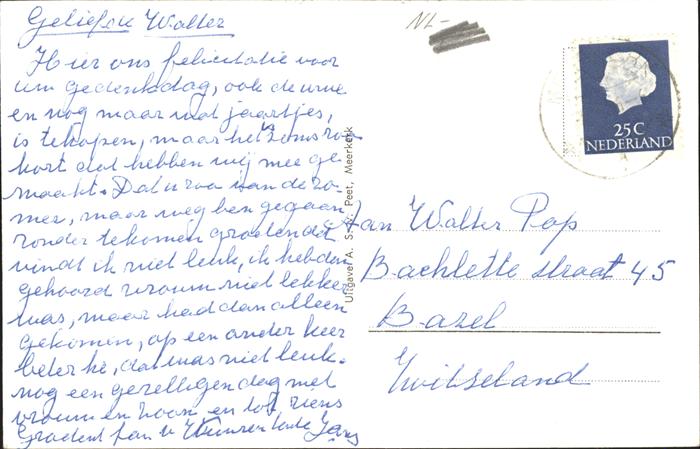 Geliefde Walter
Hier ons felicitatie voor
um gedenkdag, ook de uwe
en nog maar wat jaartjes,
is te hopen, maar het soms zo
kort dat hebben wij mee ge-
maakt. Dat u zoo van de zo-
mer, maar weg ben gegaan
zonder te komen groeten dat
vindt ik niet leuk, ik heb dan
gehoord vrouw niet lekker
was, maar had dan alleen
gekomen, op een ander keer
beter hé, dat was niet leuk.
nog een gezelligen dag met
vrouw en zoon en tot ziens
Groeten fan
NL-
25 C
NEDERLAND
Uitgave: A. Peet, Meerkerk
Jan Walter Pop
Bachlette straat 45
Bazel
Zwitseland